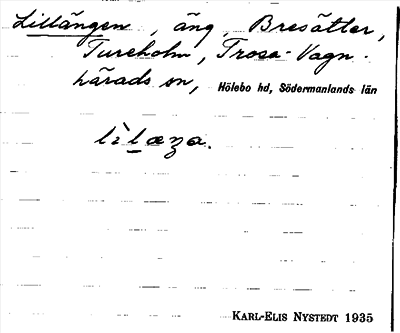 Lillängen, äng, Bresätter,
Tureholm, Trosa-Vagn-
härads sn, Hölebo hd, Södermanlands län
KARL-ELIS NYSTEDT 1935